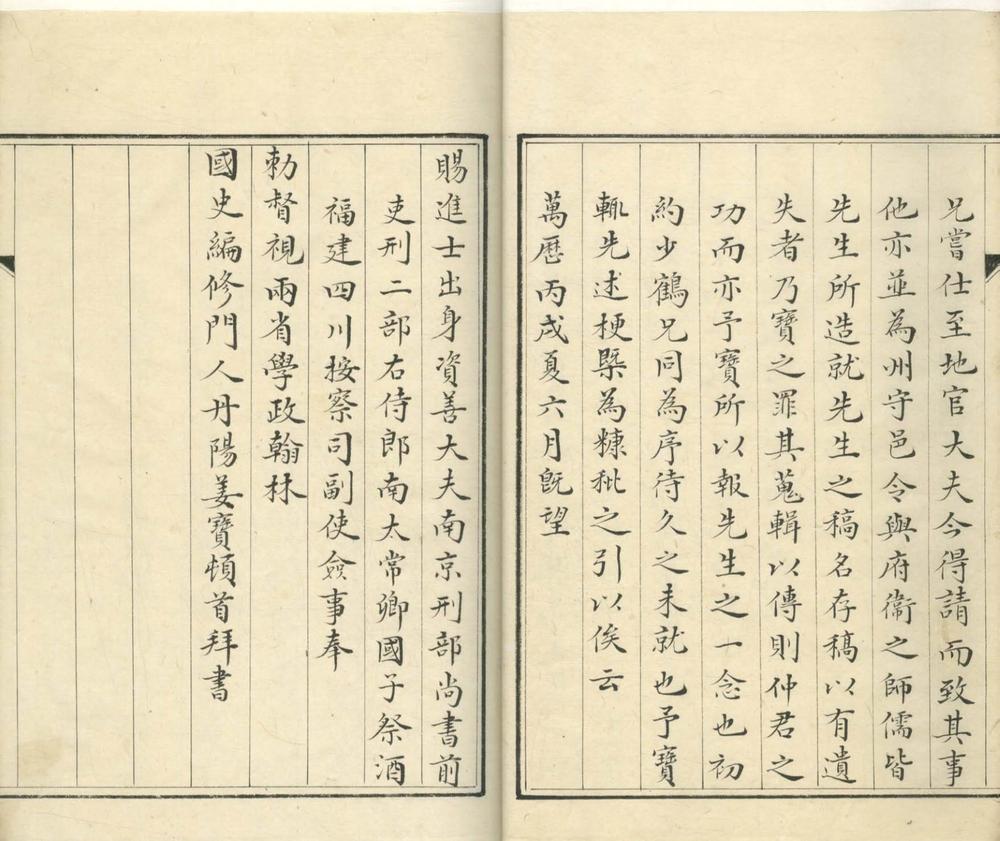 兄嘗仕至地官大夫今得請而致其事
他亦並為州守邑令與府衞之師儒皆
先生所造就先生之稿名存稿以有遺
失者乃寶之罪其蒐輯以傳則仲君之
功而亦予寶所以報先生之一念也初
約少鶴兄同為序待久之未就也予寶
輒先述梗槩為糠秕之引以俟云
萬曆丙戌夏六月旣望
賜進士出身資善大夫南京刑部尚書前
吏刑二部右侍郎南太常卿國子祭酒
福建四川按察司副使僉事奉
勑督視兩省學政翰林
國史編修門人丹陽姜寶頓首拜書